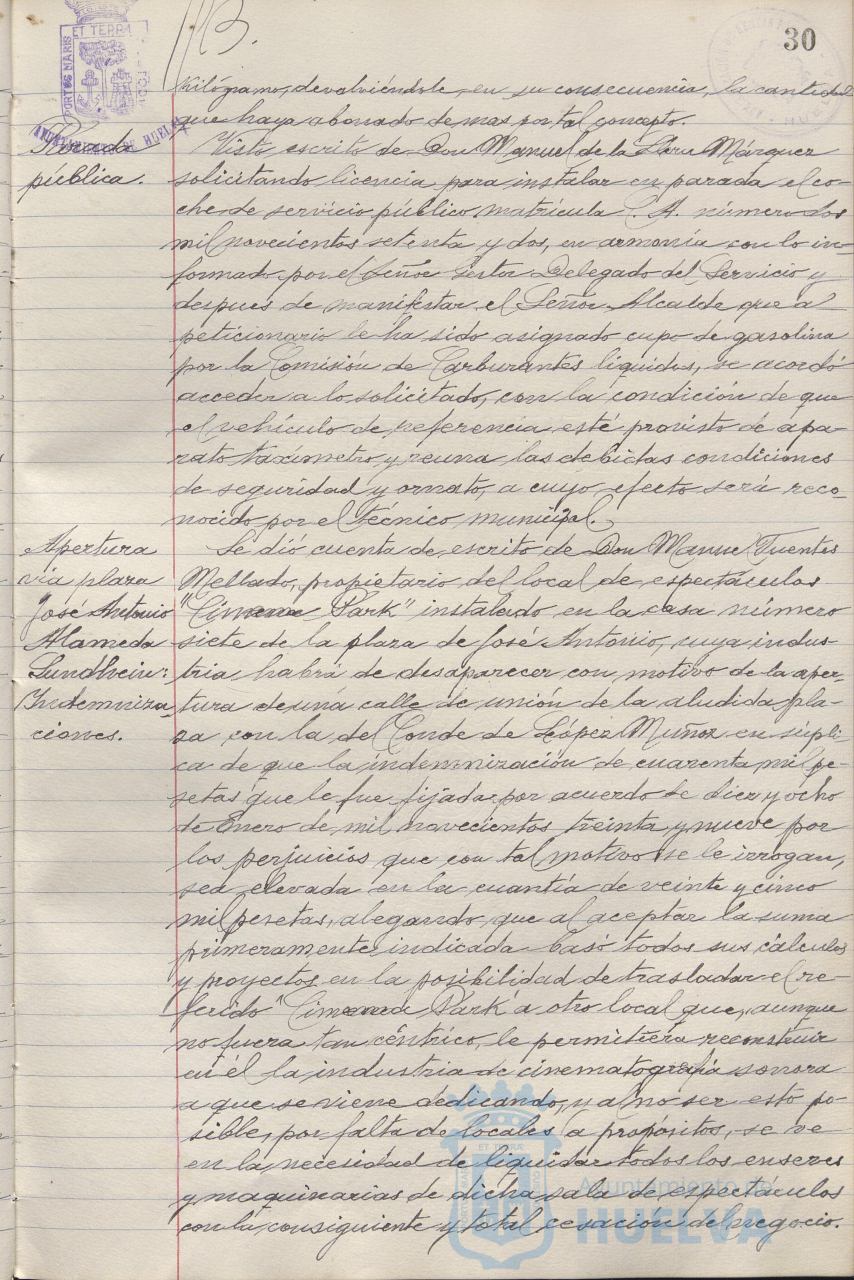 113.
30
ET TERRA
PORTUS MARIS
AYUNTAMIENTO DE HUELVA
kilógramo, devolviéndole, en su consecuencia, la cantidad
que haya abonado de mas por tal concepto.
Parada
pública.
Visto escrito de Don Manuel de la Márquez
solicitando licencia para instalar en parada el co-
che de servicio público matrícula . A. número dos
mil novecientos setenta y dos, en armonía con lo in-
formado por el Señor Gestor Delegado del Servicio y
después de manifestar el Señor Alcalde que al
peticionario le ha sido asignado cupo de gasolina
por la Comisión de Carburantes líquidos, se acordó
acceder a lo solicitado, con la condición de que
el vehículo de referencia esté provisto de apa-
rato taxímetro y reuna las debidas condiciones
de seguridad y ornato, a cuyo efecto será reco-
nocido por el técnico municipal.
Apertura
vía plaza
José Antonio
Alameda
Sundheim:
Indemniza-
ciones.
Se dió cuenta de escrito de Don Manuel Fuentes
Mellado, propietario del local de espectáculos
"Cinema Park" instalado en la casa número
siete de la plaza de José Antonio, cuya indus-
tria habrá de desaparecer con motivo de la aper-
tura de una calle de unión de la aludida pla-
za con la del Conde de López Muñoz en súpli-
ca de que la indemnización de cuarenta mil pe-
setas que le fue fijada por acuerdo de diez y ocho
de Enero de mil novecientos treinta y nueve por
los perjuicios que con tal motivo se le irrogan,
sea elevada en la cuantía de veinte y cinco
mil pesetas, alegando, que al aceptar la suma
primeramente indicada basó todos sus cálculos
y proyectos en la posibilidad de trasladar el re-
ferido "Cinema Park" a otro local que, aunque
no fuera tan céntrico, le permitiera reconstruir
en él la industria de cinematografía sonora
a que se viene dedicando, y al no ser esto po-
sible, por falta de locales a propósitos, se ve
en la necesidad de liquidar todos los enseres
y maquinarias de dicha sala de espectáculos
con la consiguiente y total cesación del negocio.
Ayuntamiento de
HUELVA